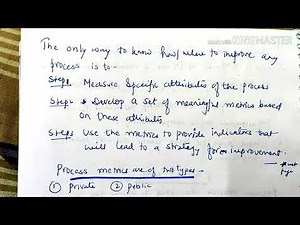 KINEMASTER
The only way to know how/where to improve any
process is to-
Step1 Measure Specific attributes of the process
Step2 Develop a set of meaningful metrics based
on these attributes.
Step3 Use the metrics to provide indicators that
will lead to a strategy for improvement.
Process metrics are of two types -
① Private ② Public